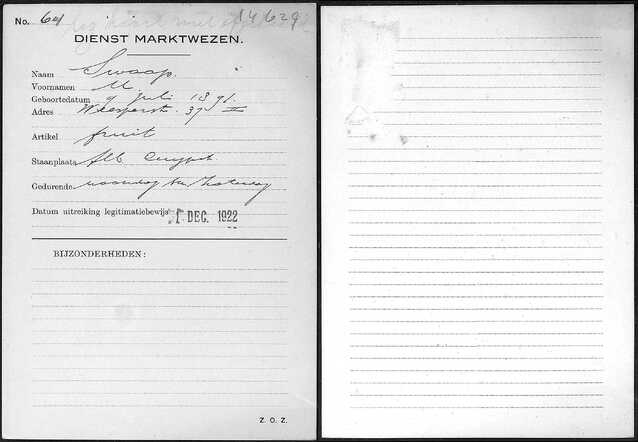 No. 64 14629
DIENST MARKTWEZEN.
Naam Swaap.
Voornamen M.
Geboortedatum 9 Juli 1891.
Adres Weesperst. 37 II
Artikel fruit
Staanplaats Alb Cuypst
Gedurende maandag tm Zaterdag
Datum uitreiking legitimatiebewijs 1 DEC. 1922
BIJZONDERHEDEN:
Z. O. Z.